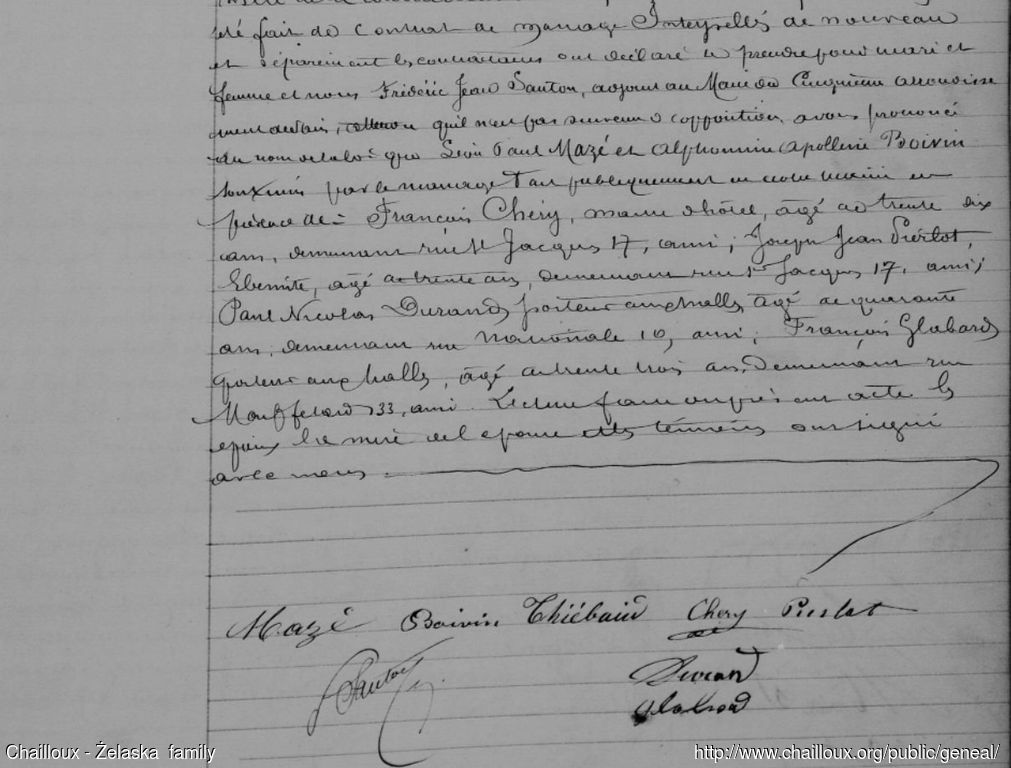 été fait de Contrat de mariage Interpellés de nouveau
et séparément les contractans ont déclaré se prendre pour mari et
femme et nous Frédéric Jean Santon, adjoint au Maire du Cinquième arrondisse
ment de Paris, attendu qu'il n'est pas survenu d'opposition avons prononcé
au nom de la loi que Léon Paul Mazé et Alphonsine Apolline Boivin
sont unis par le mariage Fait publiquement en cette mairie en
présence de = François Chéry, maître d'hôtel, âgé de trente six
ans, demeurant rue St Jacques 17, ami; Joseph Jean Piérlot,
Ebéniste, âgé de trente ans, demeurant rue St Jacques 17, ami;
Paul Nicolas Durand, porteur aux halles, âgé de quarante
ans, demeurant rue Nationale 10, ami; François Glabard
porteur aux halles, âgé de trente trois ans, demeurant rue
Mouffetard 33, ami. Lecture faite du présent acte les
époux la mère de l'épouse et les témoins ont signé
avec nous
Mazé Boivin Thiébaud Chery Pierlot
Santon Durand
Glabard
Chailloux - Želaska family http://www.chailloux.org/public/geneal/